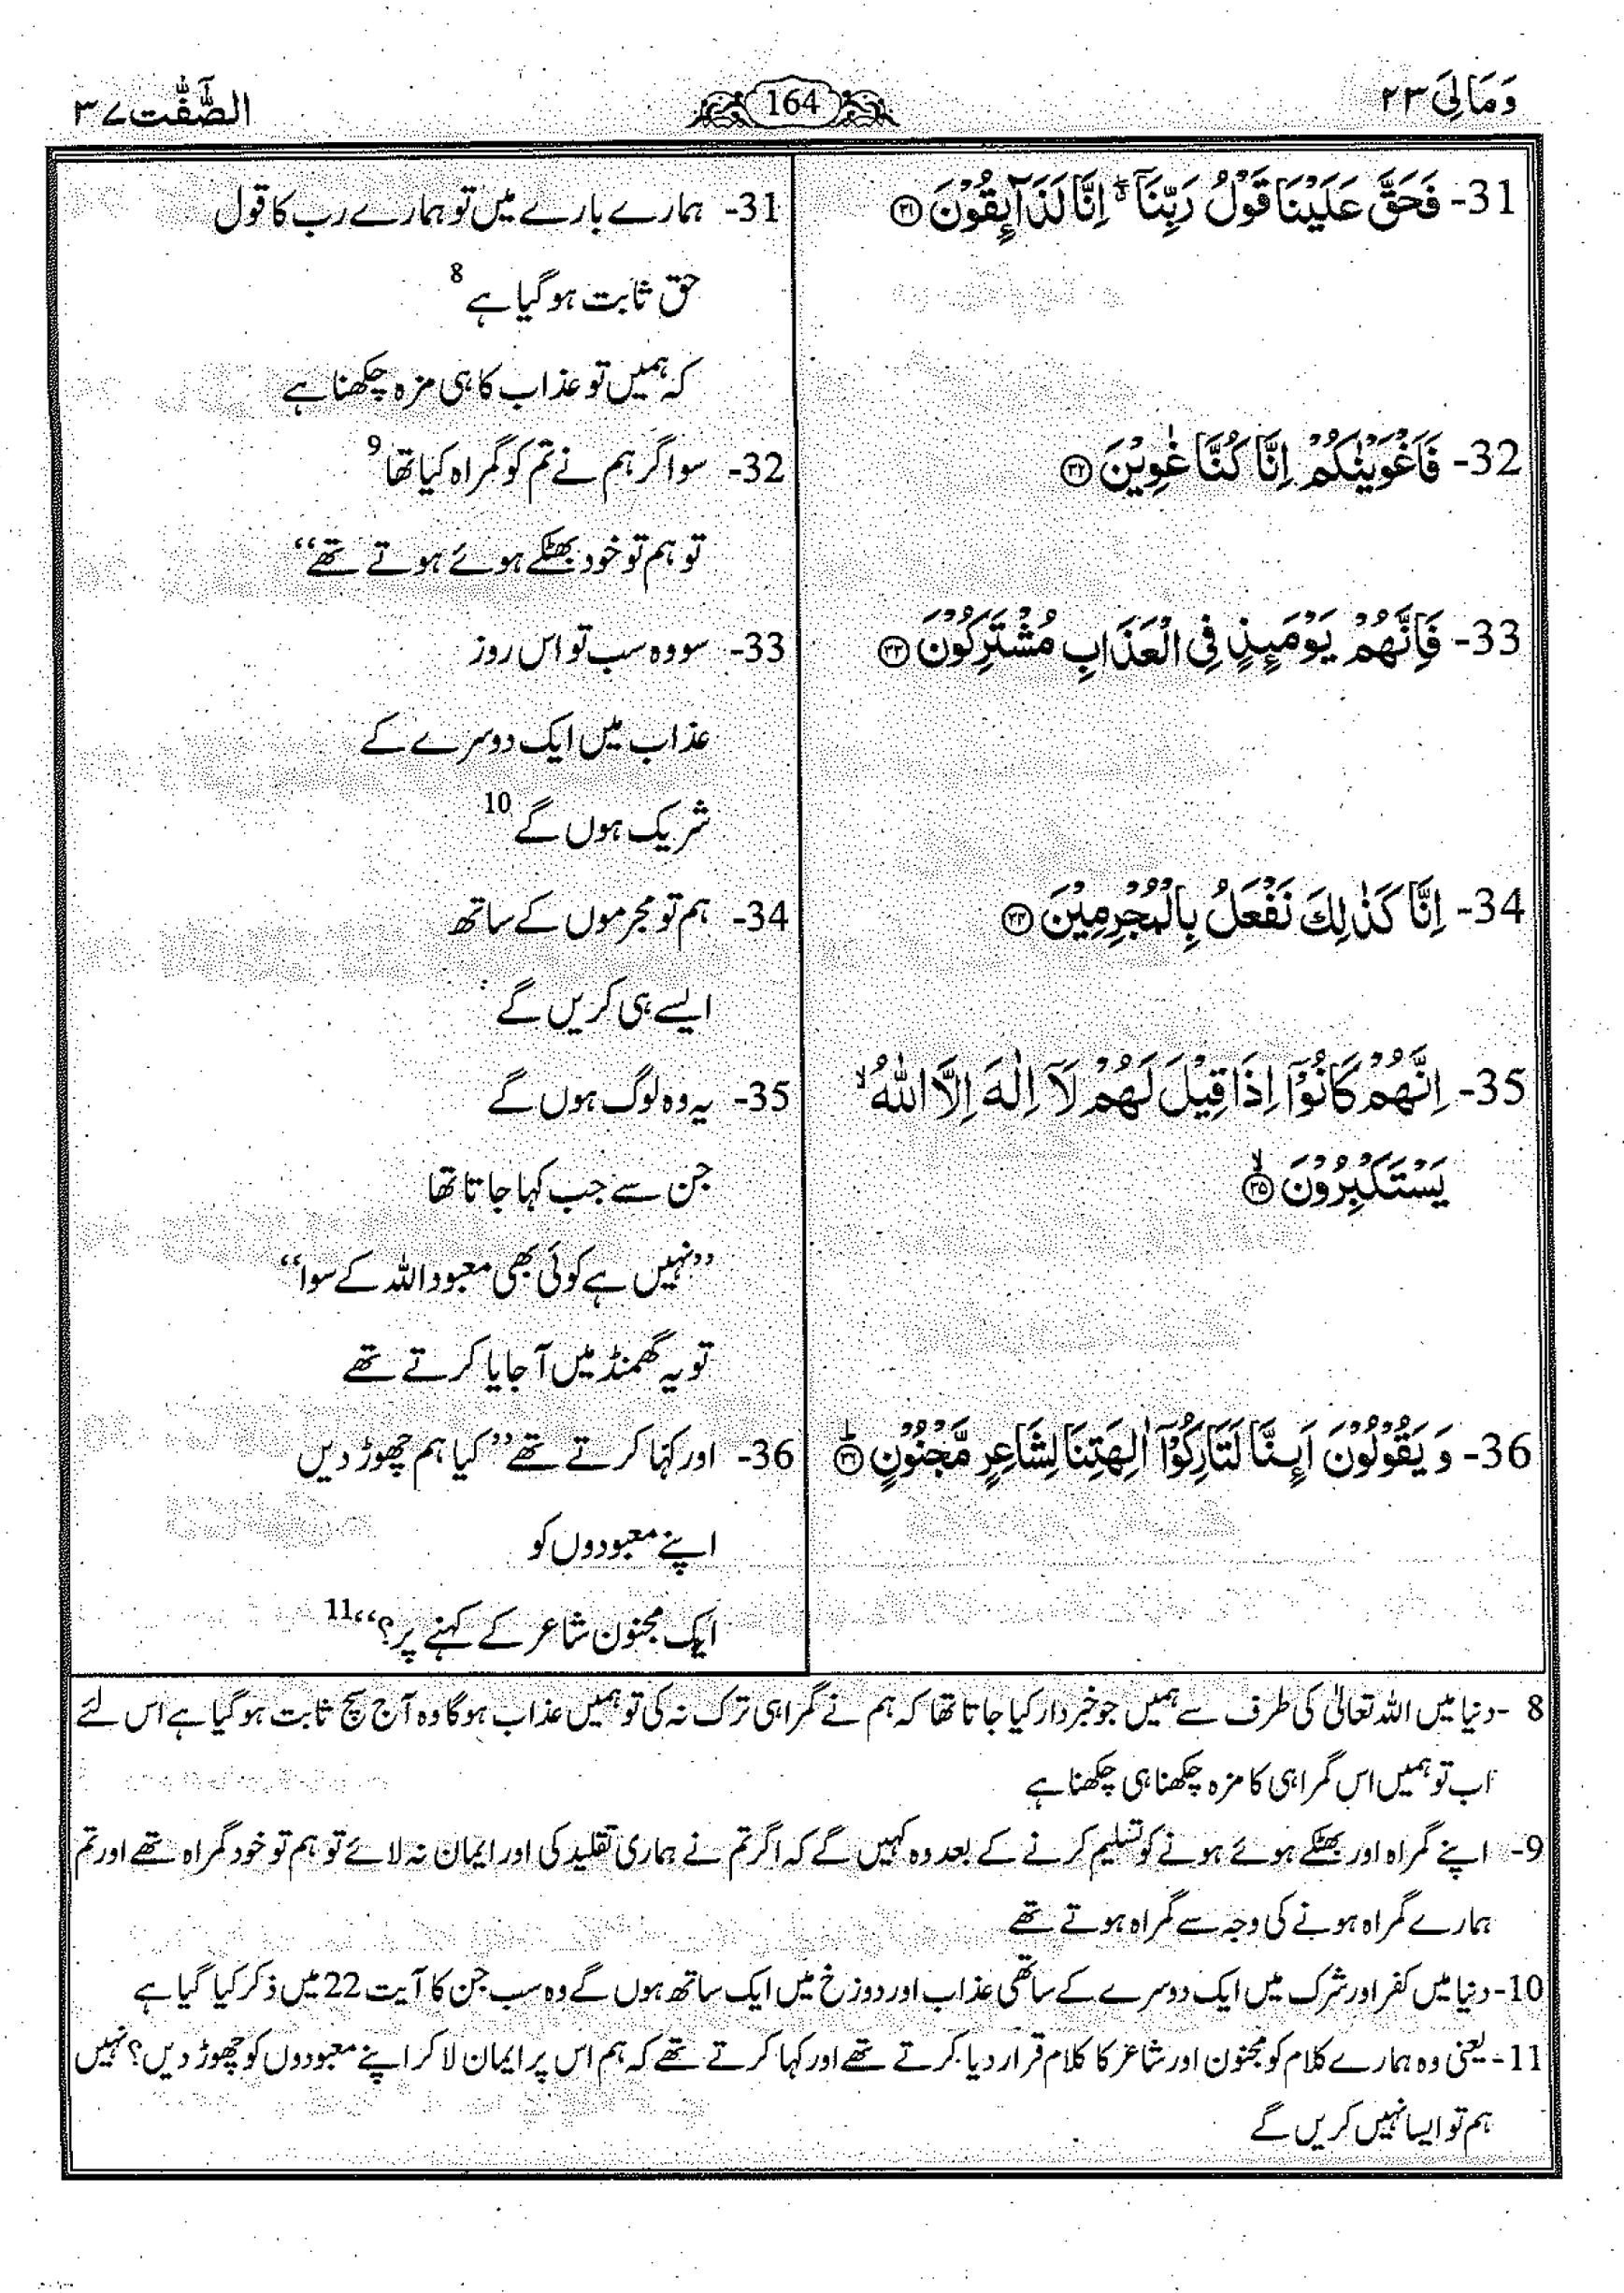 وَمَالِیَ ۲۳
164
الصّٰٓفّٰت ۳۷
31- فَحَقَّ عَلَیْنَا قَوْلُ رَبِّنَاۤ ۖۗ اِنَّا لَذَآىِٕقُوْنَ ﴿۳۱﴾
32- فَاَغْوَیْنٰكُمْ اِنَّا كُنَّا غٰوِیْنَ ﴿۳۲﴾
33- فَاِنَّهُمْ یَوْمَىِٕذٍ فِی الْعَذَابِ مُشْتَرِكُوْنَ ﴿۳۳﴾
34- اِنَّا كَذٰلِكَ نَفْعَلُ بِالْمُجْرِمِیْنَ ﴿۳۴﴾
35- اِنَّهُمْ كَانُوْۤا اِذَا قِیْلَ لَهُمْ لَاۤ اِلٰهَ اِلَّا اللّٰهُ ۙ
یَسْتَكْبِرُوْنَ ﴿ۙ۳۵﴾
36- وَ یَقُوْلُوْنَ اَىِٕنَّا لَتَارِكُوْۤا اٰلِهَتِنَا لِشَاعِرٍ مَّجْنُوْنٍ ﴿ؕ۳۶﴾
31- ہمارے بارے میں تو ہمارے رب کا قول
حق ثابت ہو گیا ہے 8
کہ ہمیں تو عذاب کا ہی مزہ چکھنا ہے
32- سو اگر ہم نے تم کو گمراہ کیا تھا 9
تو ہم تو خود بھٹکے ہوئے ہوتے تھے“
33- سو وہ سب تو اس روز
عذاب میں ایک دوسرے کے
شریک ہوں گے 10
34- ہم تو مجرموں کے ساتھ
ایسے ہی کریں گے
35- یہ وہ لوگ ہوں گے
جن سے جب کہا جاتا تھا
”نہیں ہے کوئی بھی معبود اللہ کے سوا“
تو یہ گھمنڈ میں آ جایا کرتے تھے
36- اور کہا کرتے تھے ”کیا ہم چھوڑ دیں
اپنے معبودوں کو
ایک مجنون شاعر کے کہنے پر؟“ 11
8 -دنیا میں اللہ تعالیٰ کی طرف سے ہمیں جو خبردار کیا جاتا تھا کہ ہم نے گمراہی ترک نہ کی تو ہمیں عذاب ہوگا وہ آج سچ ثابت ہو گیا ہے اس لئے
اب تو ہمیں اس گمراہی کا مزہ چکھنا ہی چکھنا ہے
9- اپنے گمراہ اور بھٹکے ہوئے ہونے کو تسلیم کرنے کے بعد وہ کہیں گے کہ اگر تم نے ہماری تقلید کی اور ایمان نہ لائے تو ہم تو خود گمراہ تھے اور تم
ہمارے گمراہ ہونے کی وجہ سے گمراہ ہوتے تھے
10- دنیا میں کفر اور شرک میں ایک دوسرے کے ساتھی عذاب اور دوزخ میں ایک ساتھ ہوں گے وہ سب جن کا آیت 22 میں ذکر کیا گیا ہے
11- یعنی وہ ہمارے کلام کو مجنون اور شاعر کا کلام قرار دیا کرتے تھے اور کہا کرتے تھے کہ ہم اس پر ایمان لا کر اپنے معبودوں کو چھوڑ دیں؟ نہیں
ہم تو ایسا نہیں کریں گے